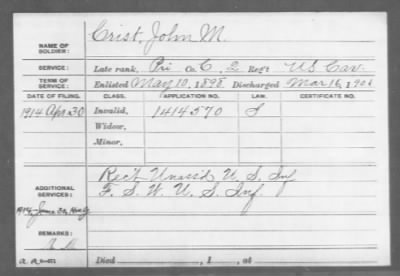 Crist, John M.
NAME OF SOLDIER:
SERVICE: Late rank, Pri Co. C, 2 Reg't U S Cav.
TERM OF SERVICE: Enlisted May 10, 1898 Discharged Mar 16, 190
DATE OF FILING. CLASS. APPLICATION NO. LAW. CERTIFICATE NO.
1914 Apr 30 Invalid, 1414570
Widow,
Minor,
ADDITIONAL SERVICES: Rect Unass'd U. S. Inf
F. S. W. U. S. Inf.
1914 June 30
REMARKS:
Died , 1 , at